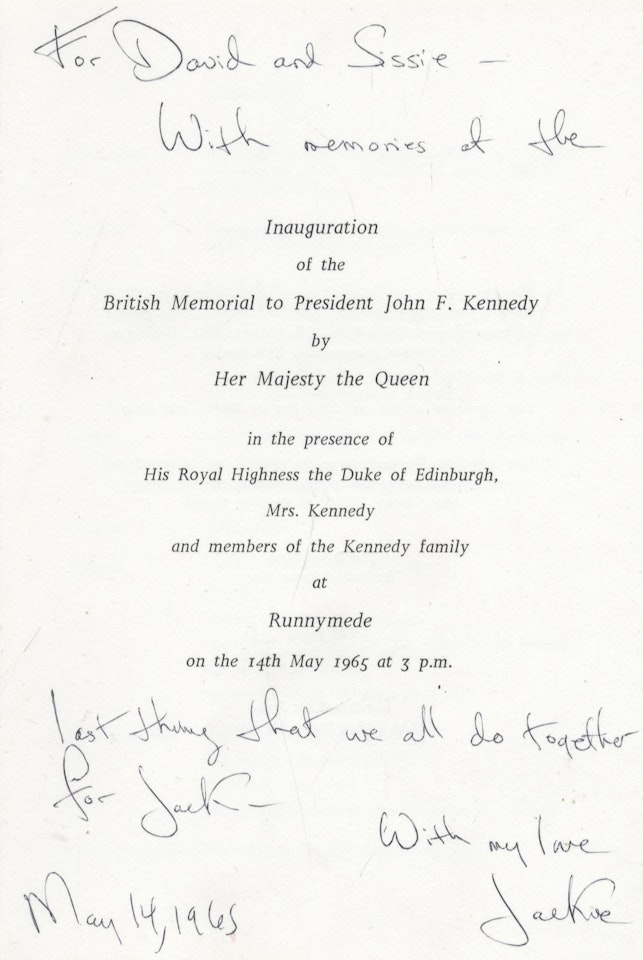 For David and Sissie —
With memories of the
Inauguration
of the
British Memorial to President John F. Kennedy
by
Her Majesty the Queen
in the presence of
His Royal Highness the Duke of Edinburgh,
Mrs. Kennedy
and members of the Kennedy family
at
Runnymede
on the 14th May 1965 at 3 p.m.
last thing that we all do together
for Jack —
With my love
Jackie
May 14, 1965